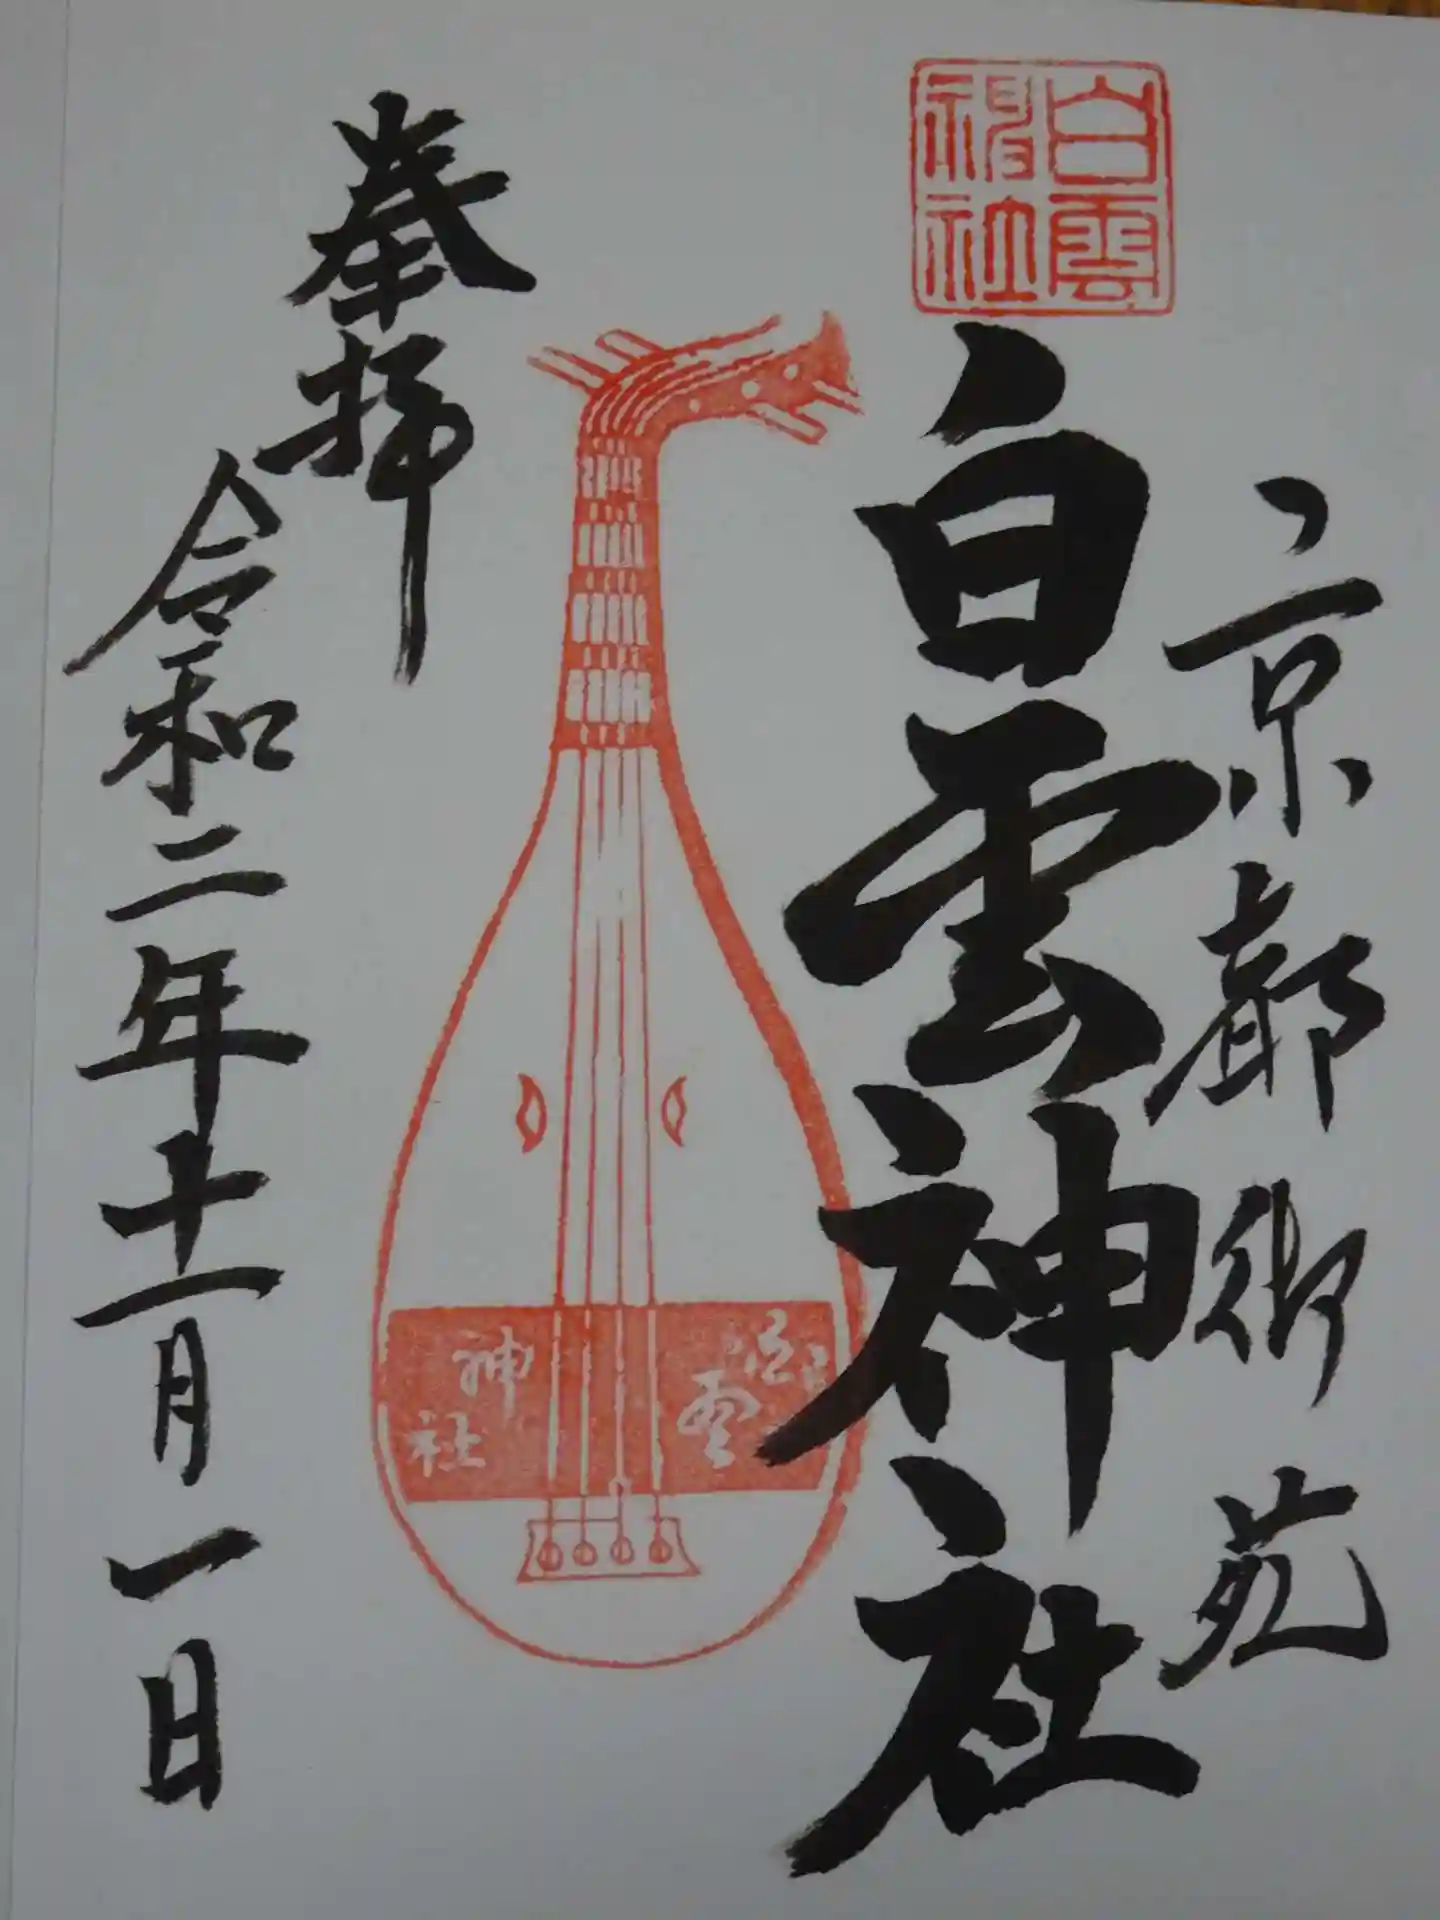 京都御苑
白雲神社
白雲神社
神社
奉拝
令和二年十一月一日